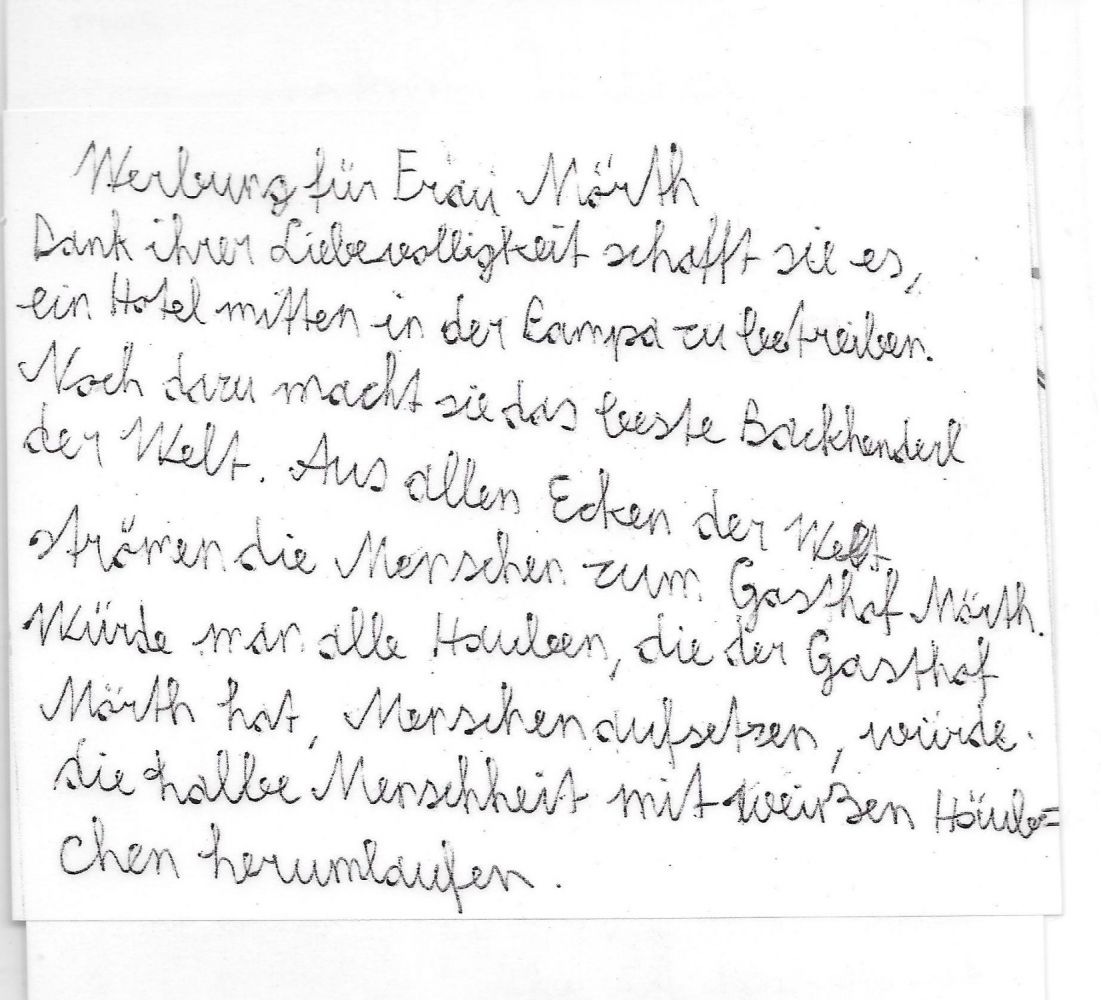 Werbung für Frau Mörth
Dank ihrer Liebevolligkeit schafft sie es,
ein Hotel mitten in der Pampa zu betreiben.
Noch dazu macht sie das beste Backhenderl
der Welt. Aus allen Ecken der Welt
strömen die Menschen zum Gasthof Mörth.
Würde man alle Hauben, die der Gasthof
Mörth hat, Menschen aufsetzen, würde
die halbe Menschheit mit weißen Häub=
chen herumlaufen.